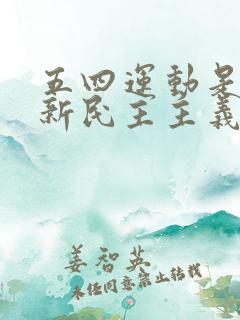 五四運動是
新民主主義
姜智英
未经同意禁止转载